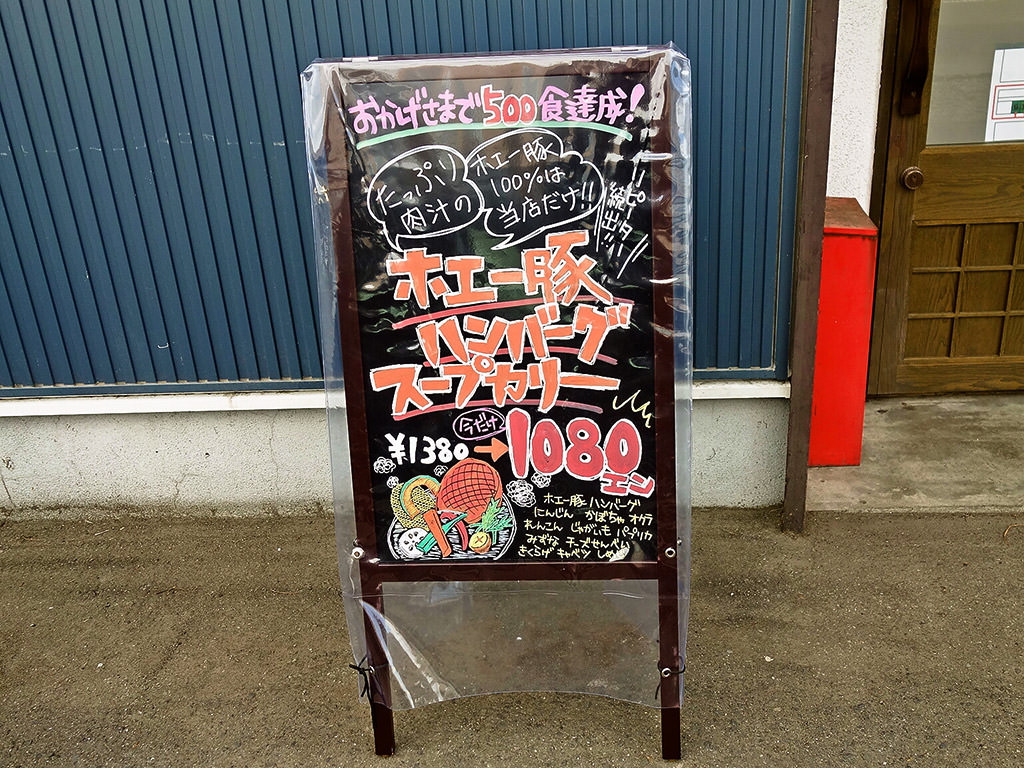 おかげさまで500食達成!
たっぷり
肉汁の
ホエー豚
100%は
当店だけ!!
リピーター
続出!!!
ホエー豚
ハンバーグ
スープカリー
今だけ
¥1380→1080
エン
ホエー豚ハンバーグ
にんじん かぼちゃ オクラ
れんこん じゃがいも パプリカ
みずな チーズせんべい
きくらげ キャベツ しめじ